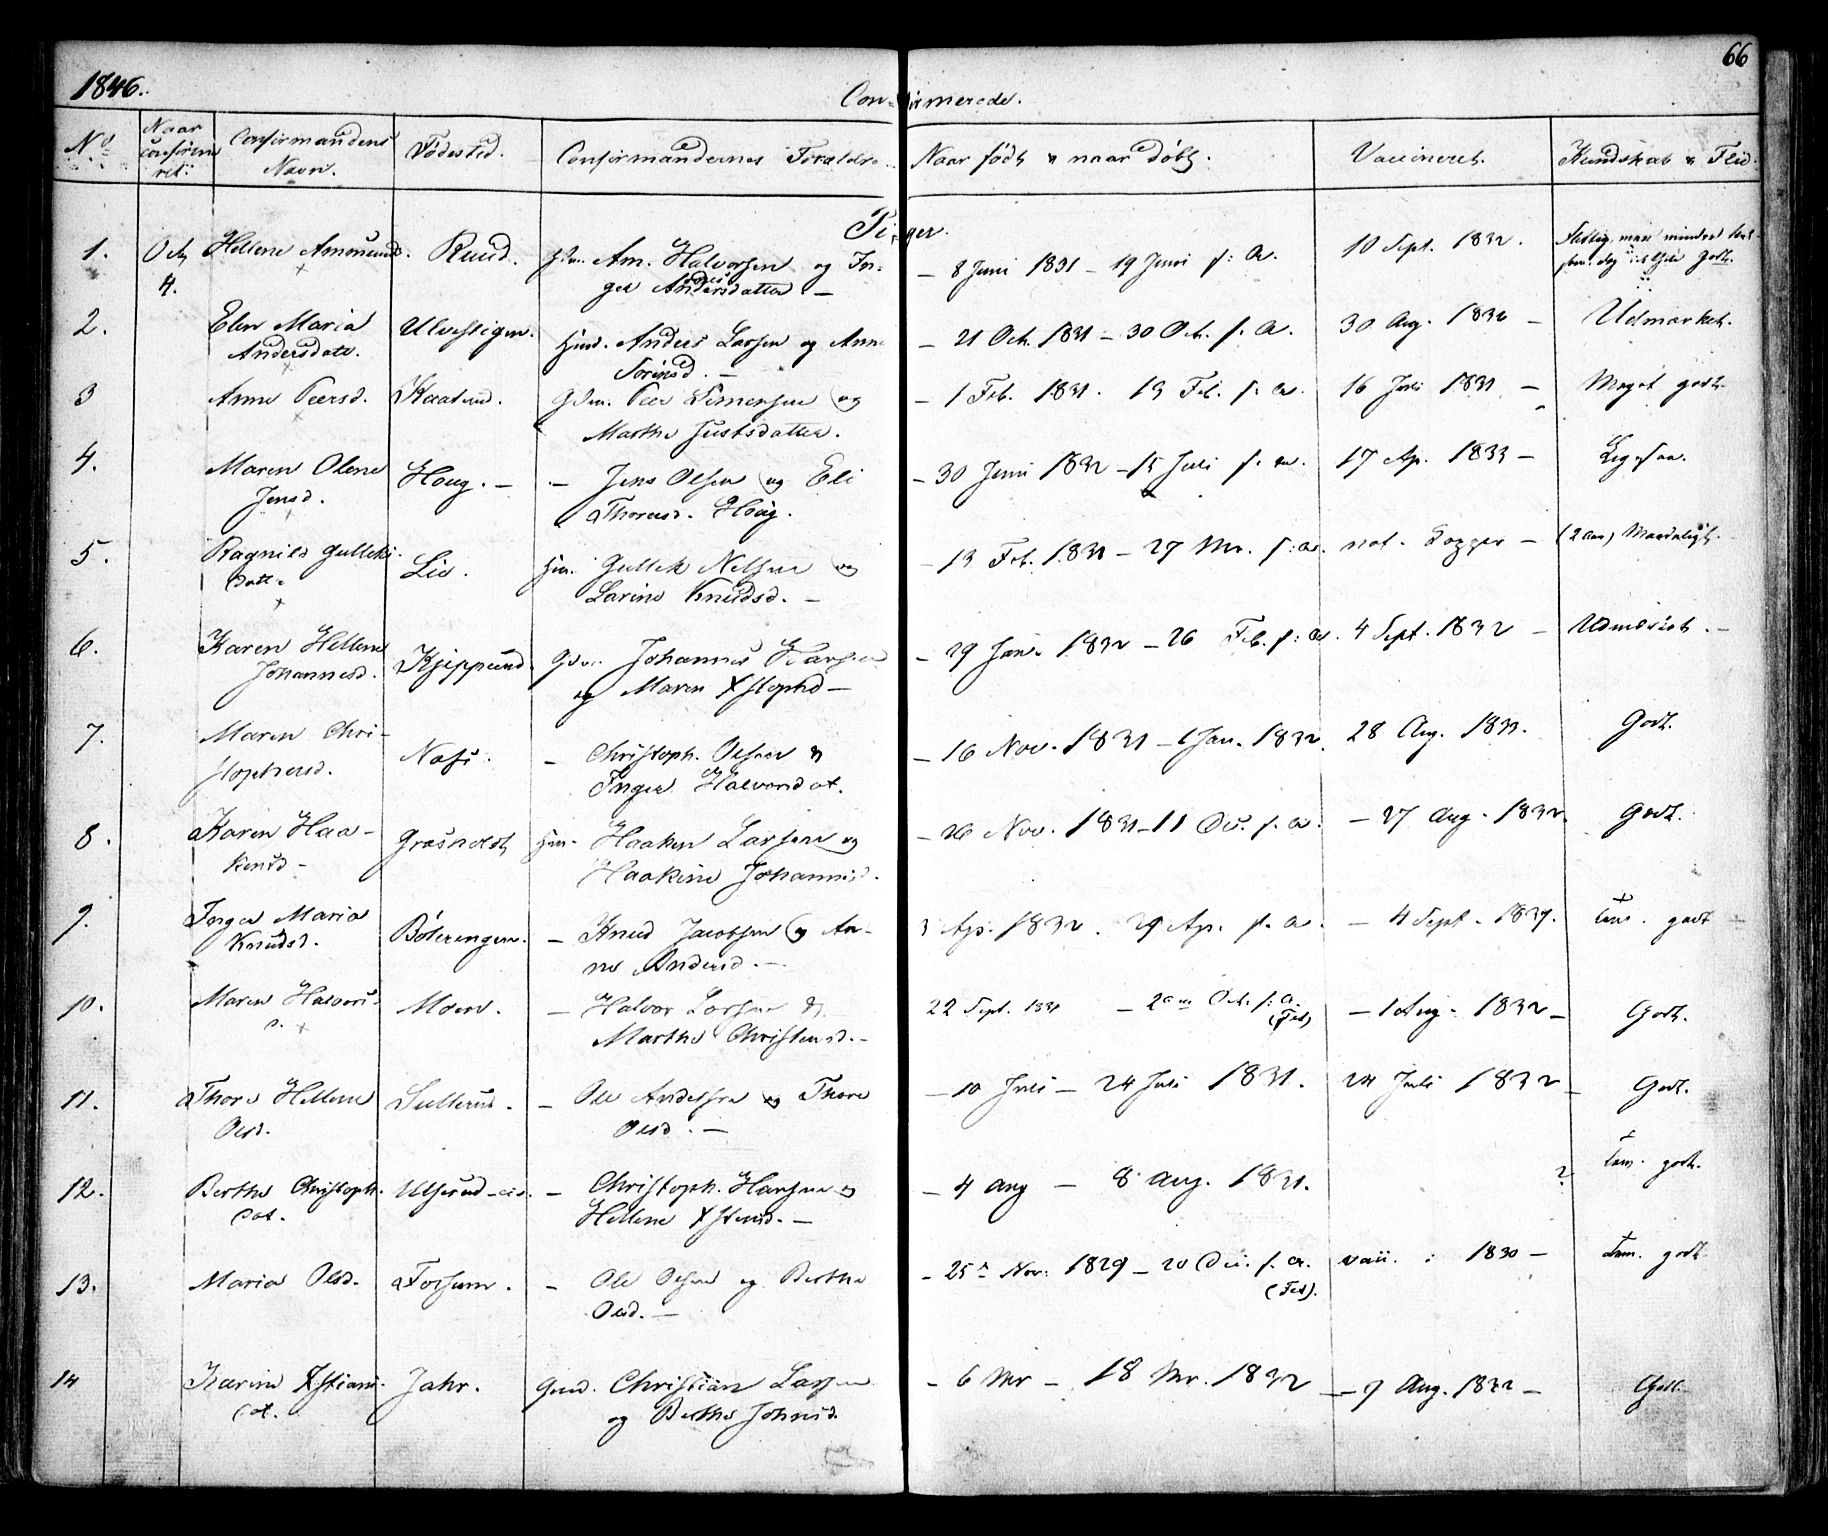 1846.
66
Confirmerede.
No Naar confirmeret: Confirmandens Navn. Fødested. Confirmandernes Forældre. Naar født & naar døbt. Vaccineret. Kundskab & Flid.
Piger.
1. Oct 4. Hellene Ammunds. Ruud. Am. Halvorsen og In- – 8 Juni 1831 – 19 Juni s: A. 10 Sept. 1832. Flittig, men mindre
ger Andersdatter – dog Godt.
2. Elen Maria Ulvestigen. Huusd. Anders Larsen og Anne – 21 Oct. 1831 – 30 Oct. s. A. 30 Aug. 1832 – Udmærket.
Andersdatt. Torinsd. –
3 Anne Peersd. Kaaterud. Gdm. Peer Simensen og – 1 Feb. 1831. 13 Feb. s. a. 16 Juli 1831 – Meget godt.
Marthe Justsdatter.
4. Maren Olene Houg. – – Jens Olsen og Eli – 30 Juni 1832 – 15 Juli s. a. 17 Ap. 1833 – Ligesaa.
Jensd. Thoresd. Houg.
5. Ragnild Gulleks- Lie. Hm. Gullek Nelsen og – 13 Feb. 1831 – 27 Mr. s: a. nat. Kopper – (2 Aar) Maadeligt.
datt. Larine Knudsd. –
6. Karen Hellene Kjeppерud. Gdm. Johannes Larsen – 29 Jan. 1832 – 26 Feb. s: a. 4 Sept. 1832 – Udmærket. –
Johannesd. og Maren Xstophd –
7. Maren Chri- Næss. – Christoph. Olsen & – 16 Nov. 1831 – 1 Jan. 1832. 28 Aug. 1833. Godt.
stophersd. Inger Halvorsdat.
8. Karen Haa- Græsholdt Hm. Haaken Larsen og – 26 Nov. 1831 – 11 Dec. s. a. – 27 Aug. 1832 Godt.
kensd – Haakine Johannesd.
9. Inger Maria Bölereengen. – Knud Jacobsen og An- 3 Ap. 1832. 29 Ap. s. a. – 4 Sept. 1837. Tem. godt
Knudsd. ne Andersd. –
10. Maren Halvors- Moen. – Halvor Larsen & 22 Sept. 1831 – 2den Oct. s: a. – 1 Aug. 1832 – Godt.
d. Marthe Christensd. –
11. Thore Hellene Sullerud. – Ole Andersen og Thore – 10 Juli – 24 Juli 1831. 24 Juli 1832 – Godt.
Olsd. Olsd. –
12. Berthe Christoph. Ulserud-eie. – Christoph. Hansen og – 4 Aug – 8 Aug. 1831. ? Tem. godt.
dat. Hellene Xstensd. –
13. Maria Olsd. Forsum. – Ole Olsen og Berthe – 25de Nov. 1829 – 20 Dec. s. a. vacc. : 1830 – Tem. godt
Olsd. –
14 Karine Xstians- Jahr. Gmd. Christian Larsen – 6 Mr – 18 Mr. 1832 – 7 Aug. 1832 – Godt.
dat. og Berthe Johnsd.